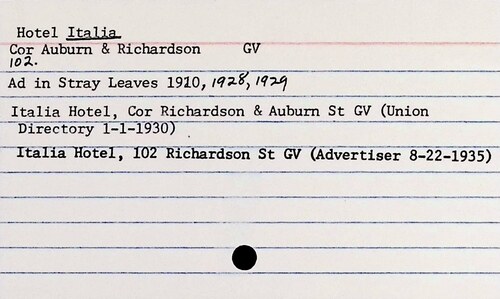 Hotel Italia
Cor Auburn & Richardson GV
102.
Ad in Stray Leaves 1910, 1928, 1929
Italia Hotel, Cor Richardson & Auburn St GV (Union
Directory 1-1-1930)
Italia Hotel, 102 Richardson St GV (Advertiser 8-22-1935)